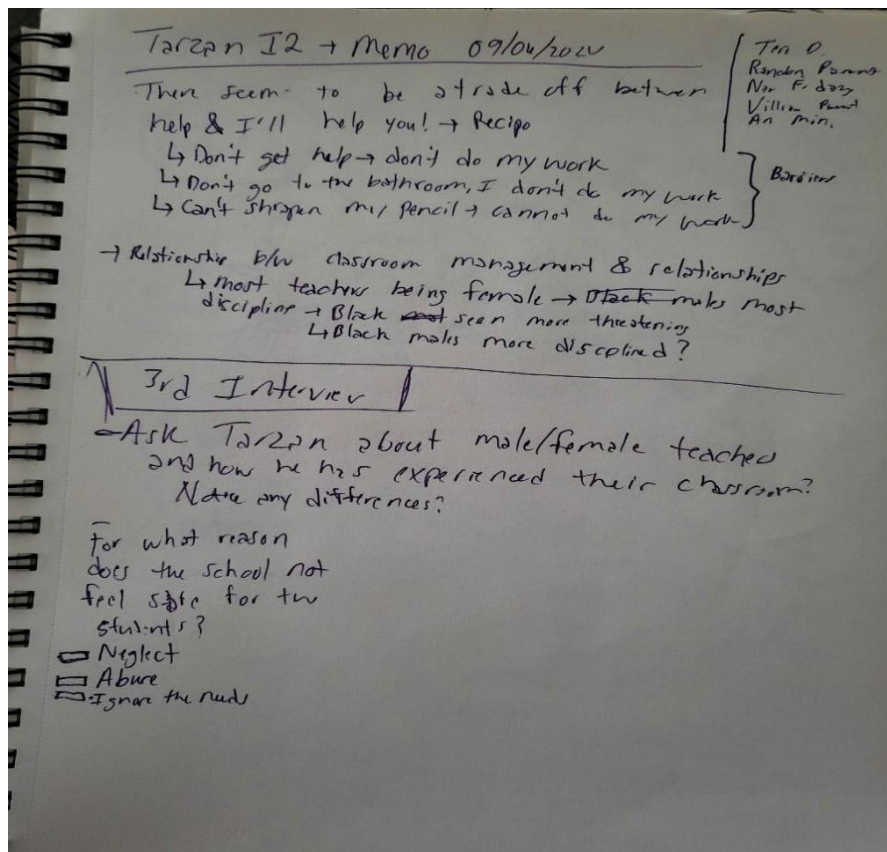 Tarzan I2 + Memo 09/04/202
There seem to be a trade off between
help & I'll help you! → Recipo
↳ Don't get help → don't do my work
↳ Don't go to the bathroom, I don't do my work
↳ Can't shrapen my pencil → cannot do my work
Barriers
→ Relationship b/w classroom management & relationships
↳ most teachers being female → Black males most
discipline → Black seen more threatening
↳ Black males more discplined?
3rd Interview
- Ask Tarzan about male/female teachers
and how he has experienced their classroom?
Notice any differences?
- For what reason
does the school not
feel safe for the
students?
Neglect
Abuse
Ignore the needs